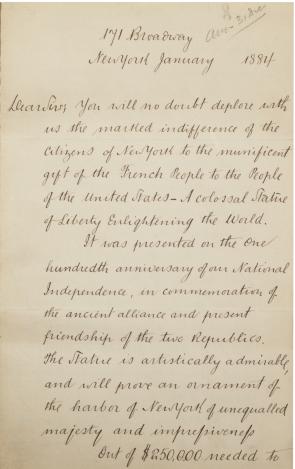 171 Broadway
New York January 1884
Dear Sir, You will no doubt deplore with
us the marked indifference of the
citizens of New York to the munificent
gift of the French People to the People
of the United States – A colossal Statue
of Liberty Enlightening the World.
It was presented on the One
hundredth anniversary of our National
Independence, in commemoration of
the ancient alliance and present
friendship of the two Republics.
The Statue is artistically admirable,
and will prove an ornament of
the harbor of New York of unequalled
majesty and impressiveness
Out of $250,000 needed to